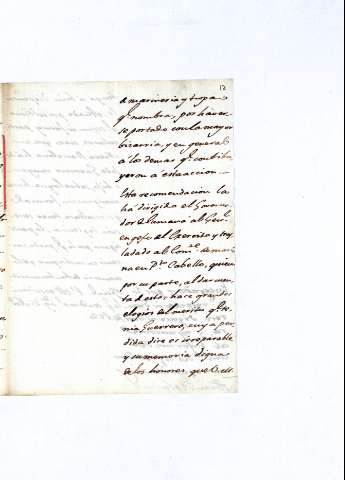 12
a marineria y tropa
q.e nombra, por haver-
se portado con la mayor
bizarria, y en general
á los demas q.e contribu-
yeron á esta accion.
Esta recomendacion la
há dirigido el Governa-
dor de Cumaná al Gral.
en gefe del Exercito y tras-
ladado al Com.te de mari-
na en P.to Cabello, quien
por su parte, al dar cuen-
ta de esto, hace grandes
elogios del merito q.e te-
nia Guerrero, cuya per-
dida dice es irreparable
y su memoria digna
de los honores que